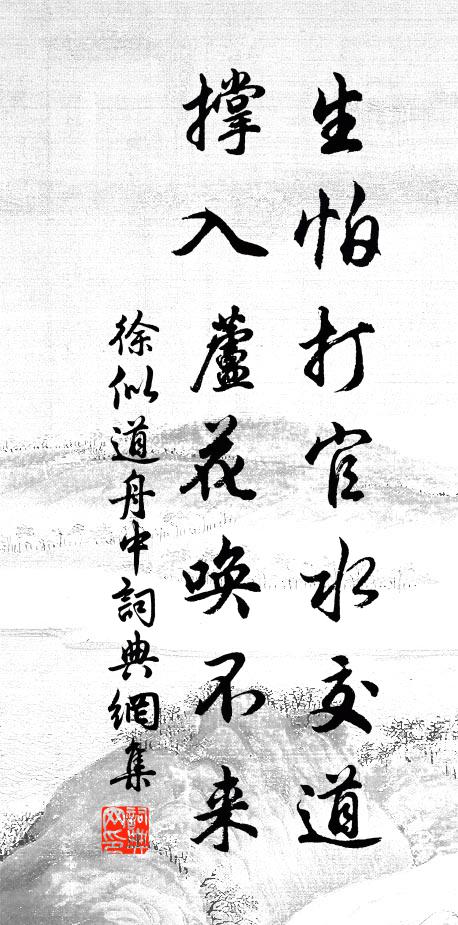 生怕打官水交道
撑入蘆花唤不来
徐似道舟中詞典網集